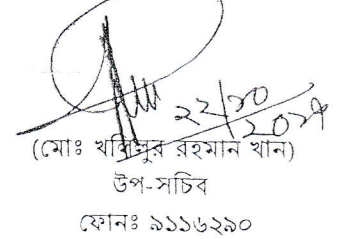 ২২/১০
(মোঃ খলিলুর রহমান খান)
উপ-সচিব
ফোনঃ ৯১১৬২৯০